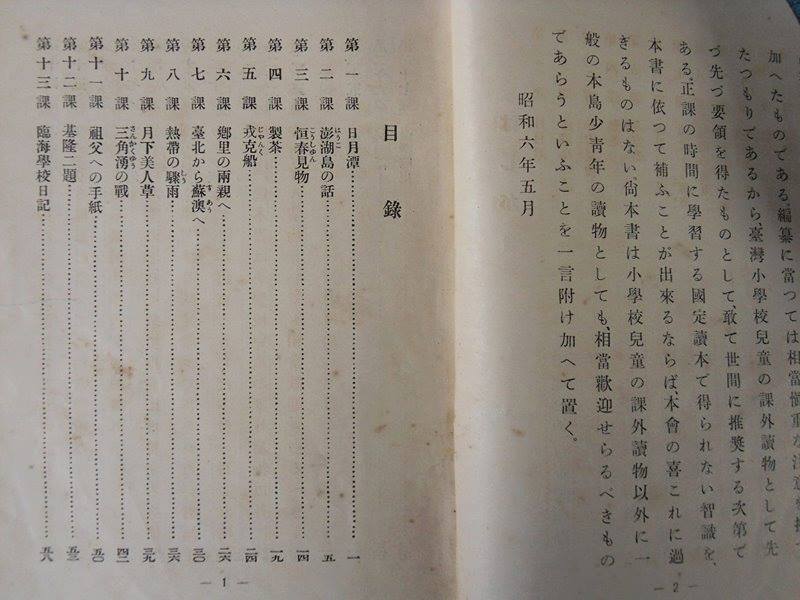 加へたものである。編纂に當つては相當愼重な注意を拂つ
たつもりであるから、臺灣小學校兒童の課外讀物として先
づ先づ要領を得たものとして、敢て世間に推奬する次第で
ある。正課の時間に學習する國定讀本で得られない智識を、
本書に依つて補ふことが出來るならば、本會の喜これに過
ぎるものはない。尙本書は小學校兒童の課外讀物以外に一
般の本島少靑年の讀物としても、相當歡迎せらるべきもの
であらうといふことを一言附け加へて置く。
昭和六年五月
— 2 —
目錄
第一課 日月潭 一
第二課 澎湖島の話 五
ほうこ
第三課 恒春見物 一四
こうしゅん
第四課 製茶 一九
第五課 戎克船 二四
じゃんく
第六課 鄕里の兩親へ 二六
第七課 臺北から蘇澳へ 三〇
すあう
第八課 熱帶の驟雨 三六
しう
第九課 月下美人草 三九
第十課 三角湧の戰 四二
さんかくゆう
第十一課 祖父への手紙 五〇
第十二課 基隆二題 五三
第十三課 臨海學校日記 五八
— 1 —